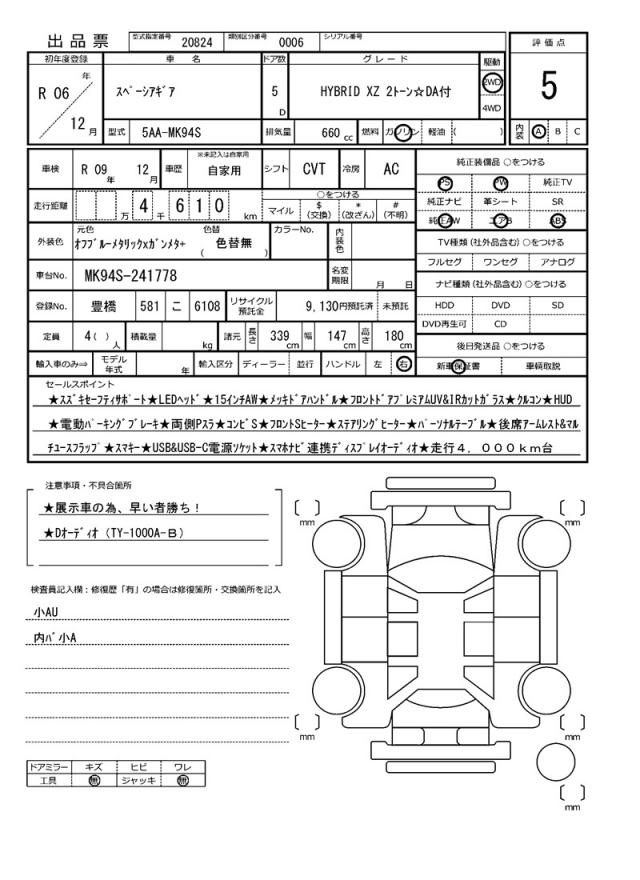 出品票 型式指定番号 20824 類別区分番号 0006 シリアル番号
初年度登録 車名 ドア数 グレード 駆動 評価点
R 06 年 12 月 ｽﾍﾟｰｼｱｷﾞｱ 5 D HYBRID XZ 2トーン☆DA付 2WD 4WD 5
型式 5AA-MK94S 排気量 660 cc 燃料 ガソリン 軽油 ( ) 内装 A B C
車検 R 09 年 12 月 車歴 ※未記入は自家用 自家用 シフト CVT 冷房 AC 純正装備品 ○をつける
PS PW 純正TV
走行距離 万 4 千 6 1 0 km ○をつける
マイル $ (交換) * (改ざん) # (不明)
純正ナビ 革シート SR
純正AW エアB ABS
外装色 元色 ｵﾌﾌﾞﾙｰﾒﾀﾘｯｸxｶﾞﾝﾒﾀ+ 色替 ( 色替無 ) カラーNo. 内装色
TV種類 (社外品含む) ○をつける
フルセグ ワンセグ アナログ
車台No. MK94S-241778 名変期限 月 日
ナビ種類 (社外品含む) ○をつける
登録No. 豊橋 581 こ 6108 リサイクル預託金 9,130円預託済 未預託
HDD DVD SD
DVD再生可 CD
定員 4( ) 人 積載量 kg 諸元 長さ 339 cm 幅 147 cm 高さ 180 cm
後日発送品 ○をつける
輸入車のみ⇒ モデル年式 年 輸入区分 ディーラー 並行 ハンドル 左 右 新車保証書 車輌取説
セールスポイント
★ｽｽﾞｷｾｰﾌﾃｨｻﾎﾟｰﾄ★LEDﾍｯﾄﾞ★15ｲﾝﾁAW★ﾒｯｷﾄﾞｱﾊﾝﾄﾞﾙ★ﾌﾛﾝﾄﾄﾞｱﾌﾟﾚﾐｱﾑUV&IRｶｯﾄｶﾞﾗｽ★ｸﾙｺﾝ★HUD
★電動ﾊﾟｰｷﾝｸﾞﾌﾞﾚｰｷ★両側Pｽﾗ★ｺﾝﾋﾞS★ﾌﾛﾝﾄSﾋｰﾀｰ★ｽﾃｱﾘﾝｸﾞﾋｰﾀｰ★ﾊﾟｰｿﾅﾙﾃｰﾌﾞﾙ★後席ｱｰﾑﾚｽﾄ&ﾏﾙ
ﾁﾕｰｽﾌﾗｯﾌﾟ★ｽﾏｷｰ★USB&USB-C電源ｿｹｯﾄ★ｽﾏﾎﾅﾋﾞ連携ﾃﾞｨｽﾌﾟﾚｲｵｰﾃﾞｨｵ★走行４．０００ｋｍ台
注意事項・不具合箇所
★展示車の為、早い者勝ち！
★Dｵｰﾃﾞｨｵ (TY-1000A-B)
検査員記入欄：修復歴「有」の場合は修復箇所・交換箇所を記入
小AU
内ﾊﾞ小A
ドアミラー キズ ヒビ ワレ
工具 無 ジャッキ 無
[ ] mm
[ ] mm
[ ] mm
[ ] mm
[ ] mm